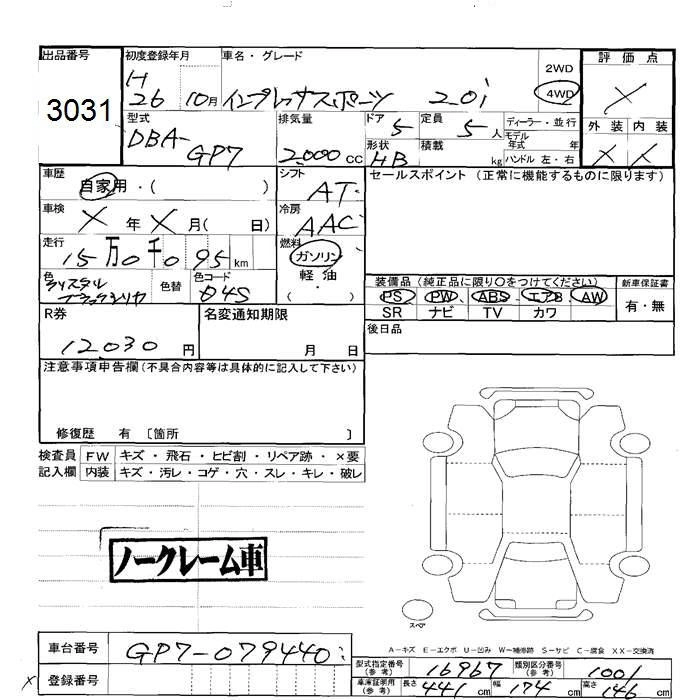 出品番号
3031
初度登録年月
H
26 10月
車名・グレード
インプレッサスポーツ 2.0i
2WD
4WD
評価点
X
外装 内装
X X
型式
DBA-
GP7
排気量
2,000 CC
ドア 5
定員 5 人
ディーラー・並行
モデル
年式 年
形状 HB
積載 kg
ハンドル 左・右
車歴
自家用・( )
シフト
AT
セールスポイント (正常に機能するものに限ります)
車検
X 年 X 月( 日)
冷房
AAC
走行
15万0千095 km
燃料
ガソリン
軽油
・( )
色
クリスタル
ブラックシリカ
色替
色コード
D4S
装備品 (純正品に限り○をつけてください)
PS PW ABS エアB AW
SR ナビ TV カワ
新車保証書
有・無
R券
12,030 円
名変通知期限
月 日
後日品
注意事項申告欄 (不具合内容等は具体的に記入して下さい)
修復歴 有 〔箇所 〕
検査員
記入欄
FW キズ・飛石・ヒビ割・リペア跡・×要
内装 キズ・汚レ・コゲ・穴・スレ・キレ・破レ
ノークレーム車
スペア
A－キズ E－エクボ U－凹み W－補修跡 S－サビ C－腐食 XX－交換済
車台番号 GP7-079440
登録番号
X
型式指定番号
(参考)
16967
類別区分番号
(参考)
1001
車庫証明用
(参考)
長さ 441 cm 幅 174 cm 高さ 146 cm